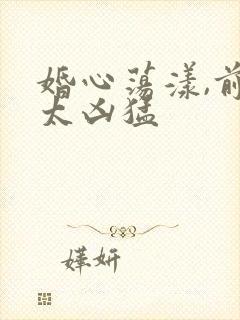 婚心荡漾,前
太凶猛
嬅妍